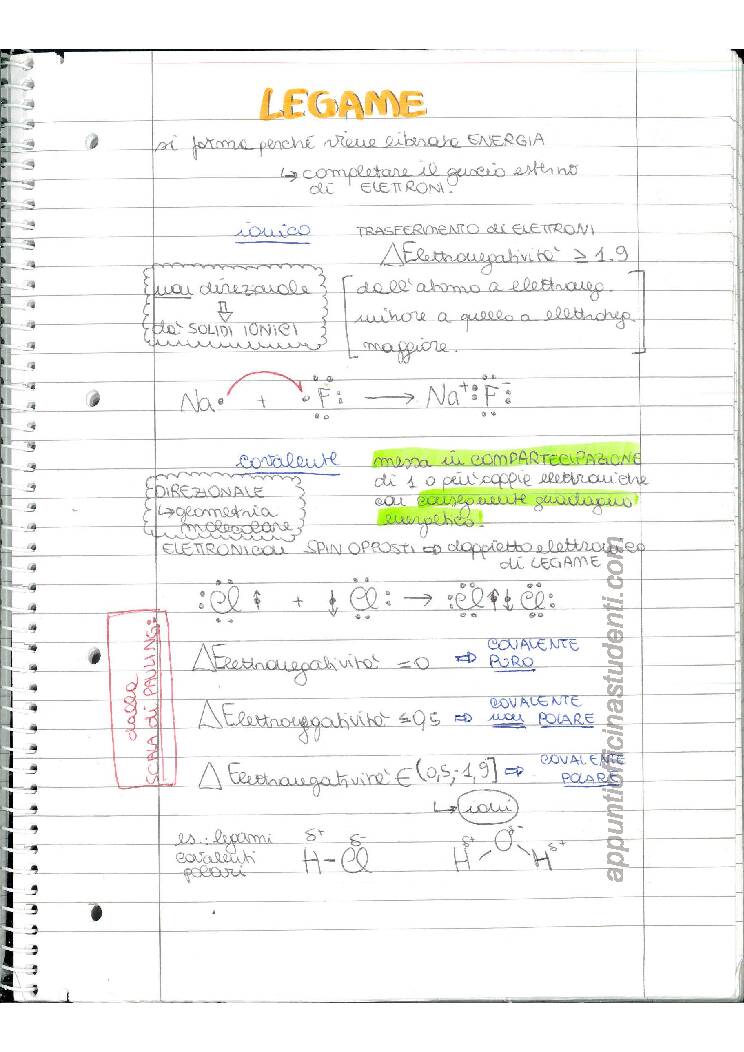 LEGAME
si forma perché viene liberata ENERGIA
↳ completare il guscio esterno
di ELETTRONI.
ionico TRASFERIMENTO di ELETTRONI
△Elettronegatività ≥ 1.9
non direzionale
⇩
da' SOLIDI IONICI
[dall'atomo a elettroneg.
minore a quello a elettroneg.
maggiore.]
Na• + •F: → Na⁺ :F:⁻
covalente messa in COMPARTECIPAZIONE
di 1 o più coppie elettroniche
con conseguente guadagno
energetico.
DIREZIONALE
↳ geometria
molecolare
ELETTRONI con SPIN OPPOSTI ⇒ doppietto elettronico
di LEGAME
:Cl↑ + ↓Cl: → :Cl↑↓Cl:
dalla
SCALA di PAULING:
△Elettronegatività = 0 ⇒ COVALENTE
PURO
△Elettronegatività ≤ 0,5 ⇒ COVALENTE
non POLARE
△Elettronegatività ∈ (0,5;-1,9] ⇒ COVALENTE
POLARE
↳ ioni
es.: legami
covalenti
polari
δ+ δ-
H–Cl
δ-
O
δ+ H H δ+
appuntiofficinastudenti.com